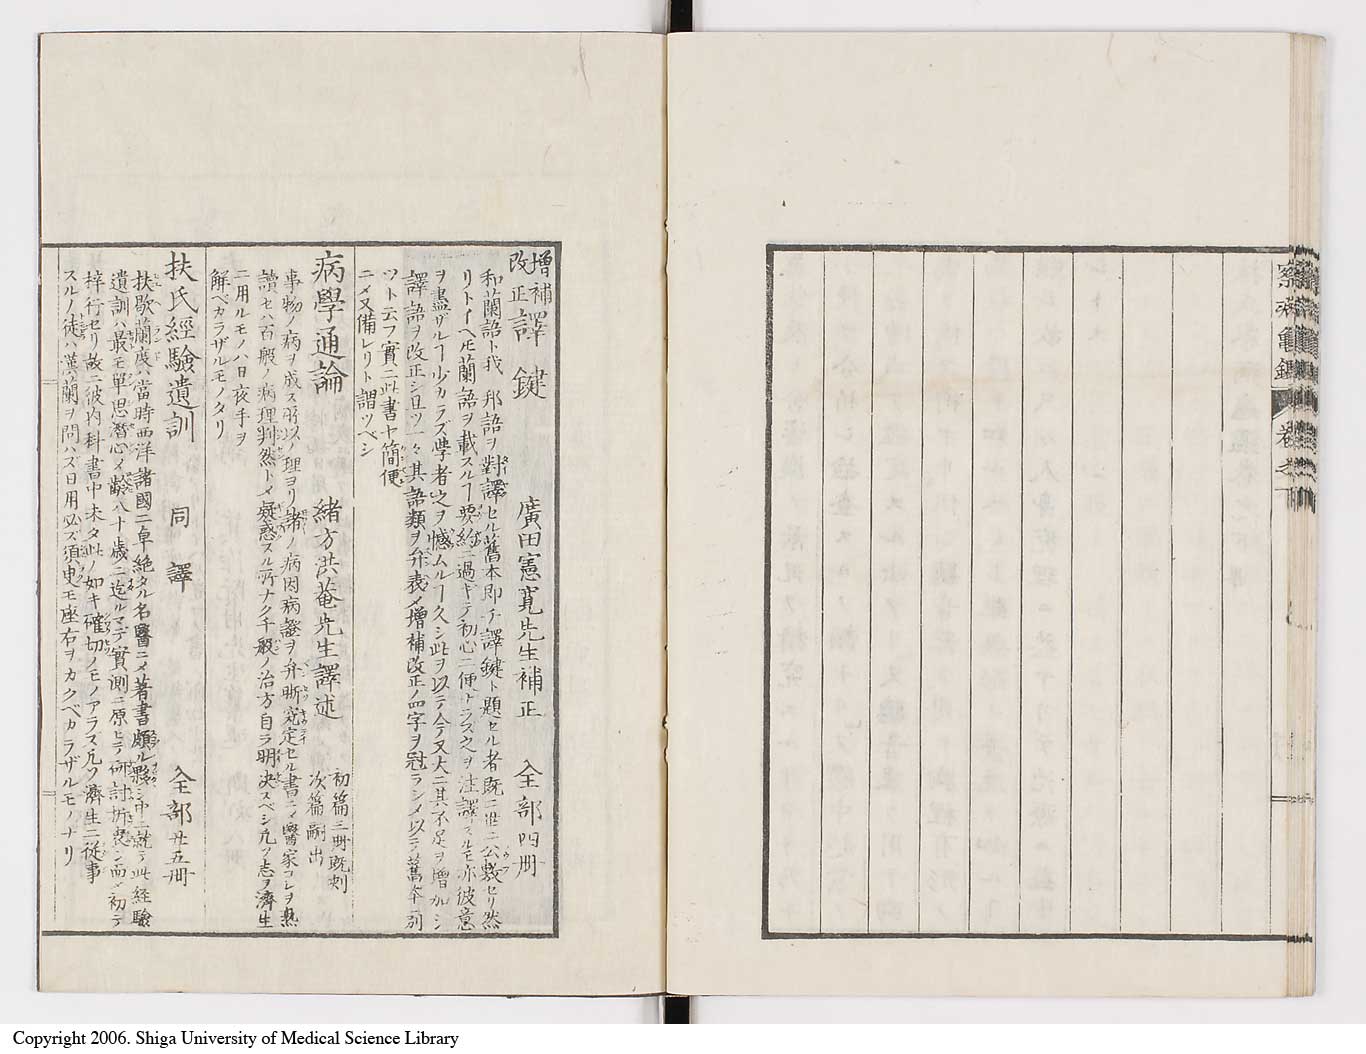 察病亀鑑 卷之下
増補改正譯鍵 廣田憲寛先生補正 全部四冊
和蘭語ト我 邦語ヲ對譯セル舊本即チ譯鍵ト題セル者既ニ世ニ公數セリ然
リトイヘ𪜈蘭語ヲ載スルヿ要給ニ過キテ初心ニ便ナラス之ヲ注譯スルモ亦彼意
ヲ盡ザルヿ少カラズ學者之ヲ憾ムルヿ久シ此ヲ以テ今又大ニ其不足ヲ増加シ
譯語ヲ改正シ且ツ一々其語類ヲ弁表メ増補改正ノ四字ヲ冠ラシメ以テ舊本ニ別
ツト云フ實ニ此書ヤ簡便
ニメ又備レリト謂ツベシ
病學通論 緒方洪菴先生譯述 初篇三冊既刻 次篇嗣出
事物ノ病ヲ成ス所以ノ理ヨリ諸ノ病因病證ヲ弁晰究定セル書ニメ醫家コレヲ熟
讀セハ百般ノ病理判然トメ疑惑スル所ナク千般ノ治方自ラ明决スベシ凡ソ志ヲ濟生
ニ用ルモノハ日夜手ヲ
解ベカラザルモノタリ
扶氏經驗遺訓 同譯 全部廿五冊
扶歇蘭度ハ當時西洋諸國ニ卓絶タル名醫ニメ著書頗ル夥シ中ニ就テ此經驗
遺訓ハ最モ單思潛心メ齡八十歳ニ迄ルマテ實測ニ原ヒテ研討折衷シ而メ初テ
梓行セリ故ニ彼内科書中未タ此ノ如キ確切ノモノアラス凡ソ濟生ニ従事
スルノ徒ハ漢蘭ヲ問ハズ日用必ズ須臾モ座右ヲカクベカラザルモノナリ
Copyright 2006. Shiga University of Medical Science Library